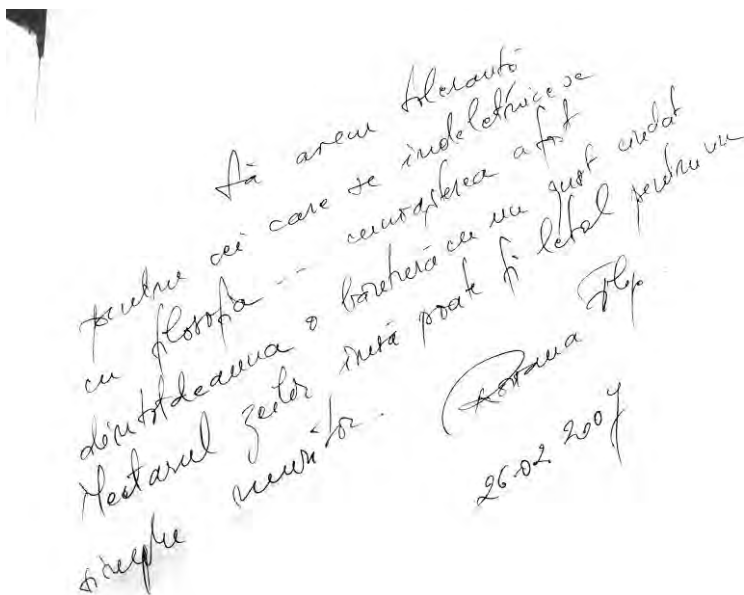 Să avem toleranță
pentru cei care se indeletnicesc
cu filosofia -- cunoașterea a fost
dintotdeauna o bautură cu un gust ciudat
Nectarul zeilor insă poate fi letal pentru un
simplu muritor.
Roxana
26.02 2007